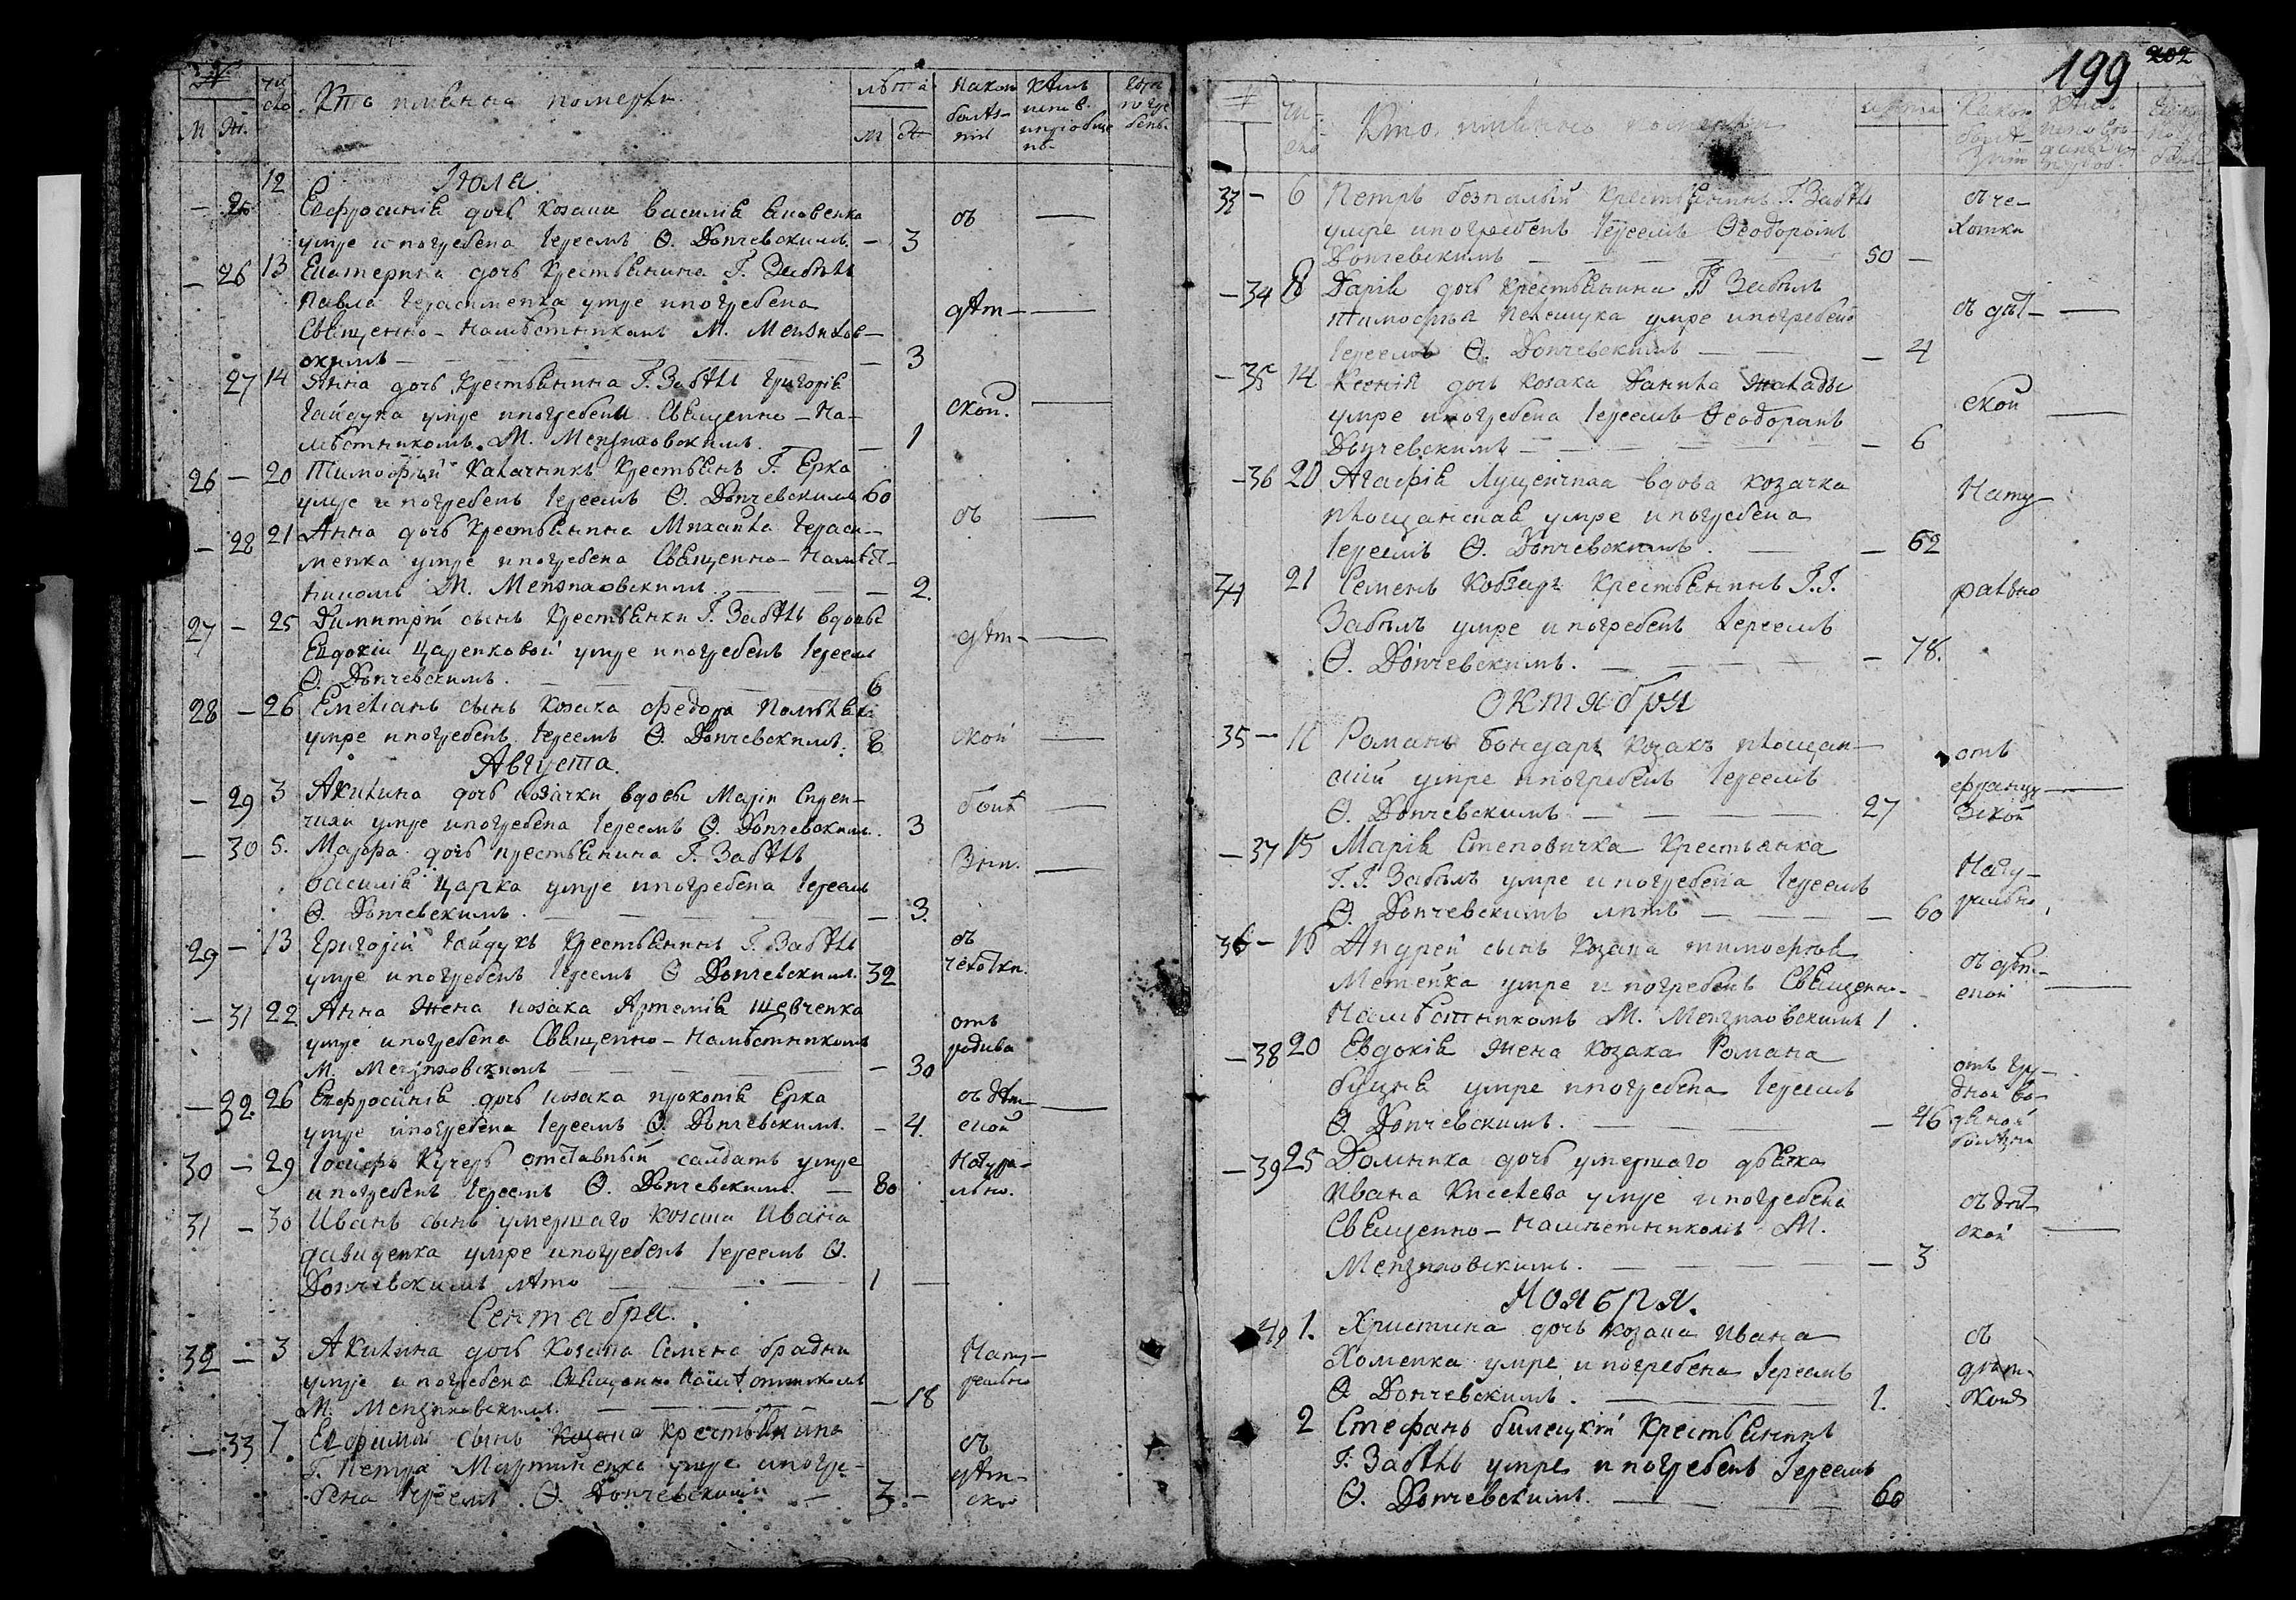 чи
сло
Кто имѣнно померъ
лѣта
М
Ж
М
Ж
Июля.
25
12
Евфросинія дочь козака василія
умре и погребена Іереемъ Ѳ. Дончевскимъ
3
26
13
Екатерина дочь крестьянина Г. Забѣлъ
павла Герасименка умре и погребена
Священно-намѣстникомъ М. Мензиков-
скимъ
3
дѣт-
27
14
Анна дочь крестьянина Г. Забѣлъ Григорія
Гайдука умре и погребена Священно-На-
мѣстникомъ М. Мензиховскимъ
1
ской.
26
20
Тимофѣй Калачникъ крестьянъ Г. Ерка
умре и погребенъ Іереемъ Ѳ. Дончевскимъ
60
28
21
Анна дочь крестьянина Михаила Гераси-
менка умре и погребена Священно-Намѣст-
никомъ М. Мензиховскимъ
2.
отъ
27
25
Димитрій сынъ крестьянки Г. Забѣлъ вдовы
Евдокіи Царенковой умре и погребенъ Іереемъ
Ѳ. Дончевскимъ.
6
дѣт-
28
26
Емеліанъ сынъ козака Федора
умре и погребенъ Іереемъ Ѳ. Дончевскимъ.
8
ской
Августа.
29
3
Акилина дочь козачки вдовы Маріи
умре и погребена Іереемъ Ѳ. Дончевским.
3
30
5.
Марфа дочь крестьянина Г. Забѣлъ
василія Царка умре и погребена Іереемъ
Ѳ. Дончевскимъ.
3.
29
13
Григорій Гайдукъ крестьянинъ Г. Забѣлъ
умре и погребенъ Іереемъ Ѳ Дончевскимъ.
32
отъ
чехотки.
31
22
Анна жена козака Артемія шевченка
умре и погребена Священно-намѣстникомъ
М. Мензиховскимъ
30
отъ
родива
32
26
Евфросинія дочь козака прокопія Ерка
умре и погребена Іереемъ Ѳ. Дончевскимъ.
4.
отъ дѣт-
ской
30
29
Іосифъ Кучеръ отставный салдатъ умре
и погребенъ Іереемъ Ѳ. Дончевскимъ.
80
Натура-
льно.
31
30
Иванъ сынъ умершаго козака Ивана
давиденка умре и погребенъ Іереемъ Ѳ.
Дончевскимъ лѣто
1
Сентабра.
32
3
Акилина дочь Козака Семена
умре и погребена Священно Намѣстникомъ
М. Мензиховскимъ.
18
Нату-
рально
33
7.
Евфимій сынъ козака крестьянина
Г. Петра Мартиненка умре и погре-
бена Іереемъ. Ѳ. Дончевскимъ
3.
отъ
дѣт-
ской
199
202
Кто имѣнно померъ
33
6
Петръ безпалый крестьянинъ Г. Забѣлъ
умре и погребенъ Іереемъ Ѳеодоромъ
Дончевскимъ
50
от че-
хотки
34
8
Дарія дочь крестьянина Г Забѣлъ
тимофѣя умре и погребена
Іереемъ Ѳ. Дончевскимъ
4
отъ дѣт-
35
14
Ксенія дочь козака Данила
умре и погребена Іереемъ Ѳеодоромъ
Дончевскимъ
6
ской
36
20
Агафія вдова козачка
площанская умре и погребена
Іереемъ Ѳ. Дончевскимъ.
62
Нату-
34
21
Семенъ Кобзарь крестьянинъ Г. Г.
Забѣлъ умре и погребенъ Іереемъ
Ѳ. Дончевскимъ.
78.
рально
октября
35
11
Романъ бондарь козакъ площан-
скій умре и погребенъ Іереемъ
Ѳ. Дончевскимъ
27
отъ
францу
зской
37
15
Марія Степовичка крестьянка
Г. Г. Забѣлъ умре и погребена Іереемъ
Ѳ. Дончевскимъ лѣтъ
60
Нату-
рально,
36
16
Андрей сынъ козака тимофѣя
умре и погребенъ Священно-
Намѣстникомъ М. Мензиховскимъ
1
отъ дѣт-
ской
38
20
Евдокія жена козака Романа
умре и погребена Іереемъ
Ѳ. Дончевскимъ.
46
отъ гру-
дной во-
дяной
болѣзни
39
25
Домника дочь умершаго дьячка
Ивана Киселева умре и погребена
Священно-намѣстникомъ М.
Мензиховскимъ.
3
отъ дѣт-
ской
Ноября.
40
1.
Христина дочь козака Ивана
Хоменка умре и погребена Іереемъ
Ѳ Дончевскимъ.
1.
отъ
дѣт-
ской
2
Стефанъ билецкій крестьянинъ
Г. Забѣлъ умре и погребенъ Іереемъ
Ѳ. Дончевскимъ.
60